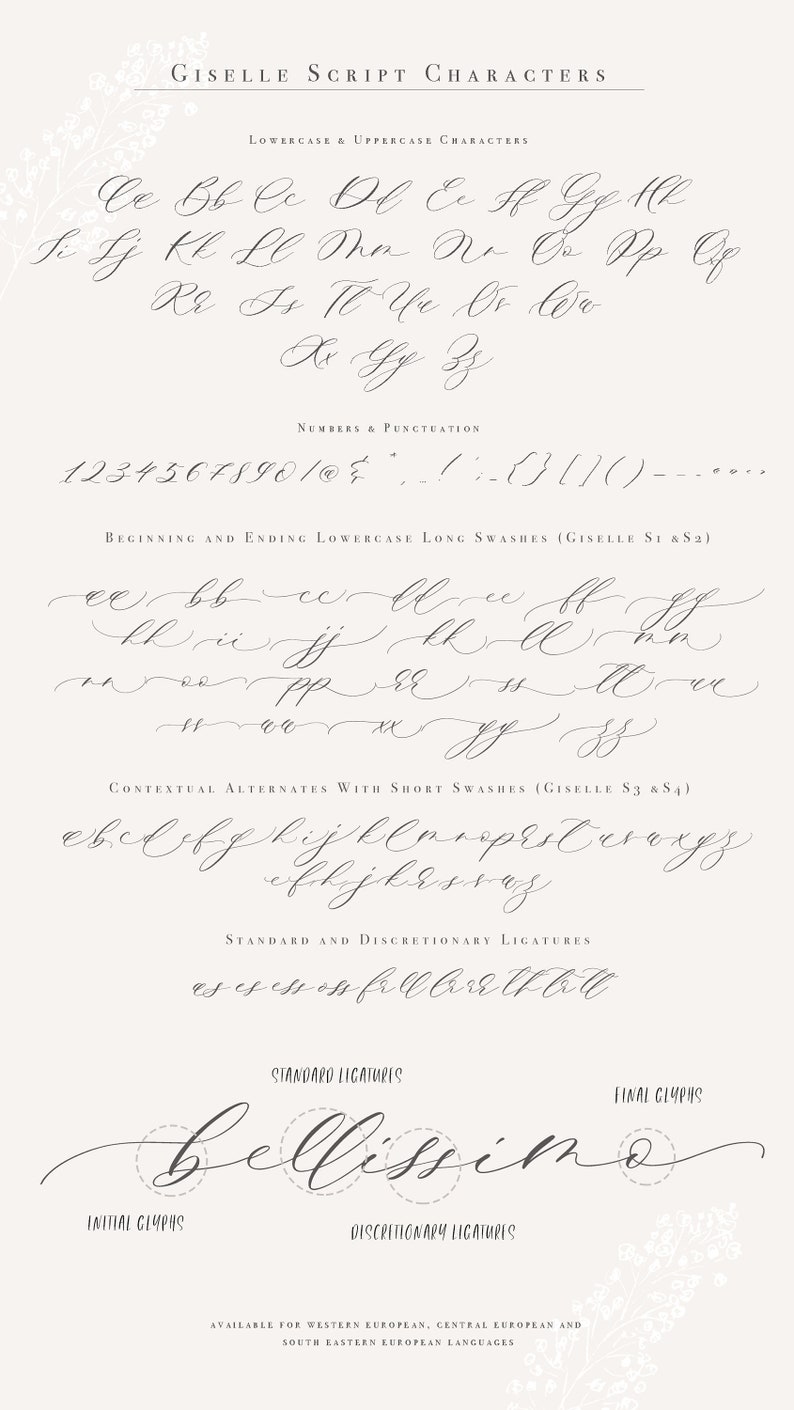 Giselle Script Characters
Lowercase & Uppercase Characters
Aa Bb Cc Dd Ee Ff Gg Hh
Ii Jj Kk Ll Mm Nn Oo Pp Qq
Rr Ss Tt Uu Vv Ww
Xx Yy Zz
Numbers & Punctuation
1234567890/@& * , ... ! ' ; _ { } [ ] ( ) — – - “ ” « » < >
Beginning and Ending Lowercase Long Swashes (Giselle S1 &S2)
aa bb cc dd ee ff gg
hh ii jj kk ll mm
nn oo pp rr ss tt uu
vv ww xx yy zz
Contextual Alternates With Short Swashes (Giselle S3 &S4)
abcdefghijklmnoprstuvwxyz
efhjkrsvwz
Standard and Discretionary Ligatures
as es ess oss fr ll lr rr th tr tt
STANDARD LIGATURES
FINAL GLYPHS
bellissimo
INITIAL GLYPHS
DISCRETIONARY LIGATURES
AVAILABLE FOR WESTERN EUROPEAN, CENTRAL EUROPEAN AND
SOUTH EASTERN EUROPEAN LANGUAGES